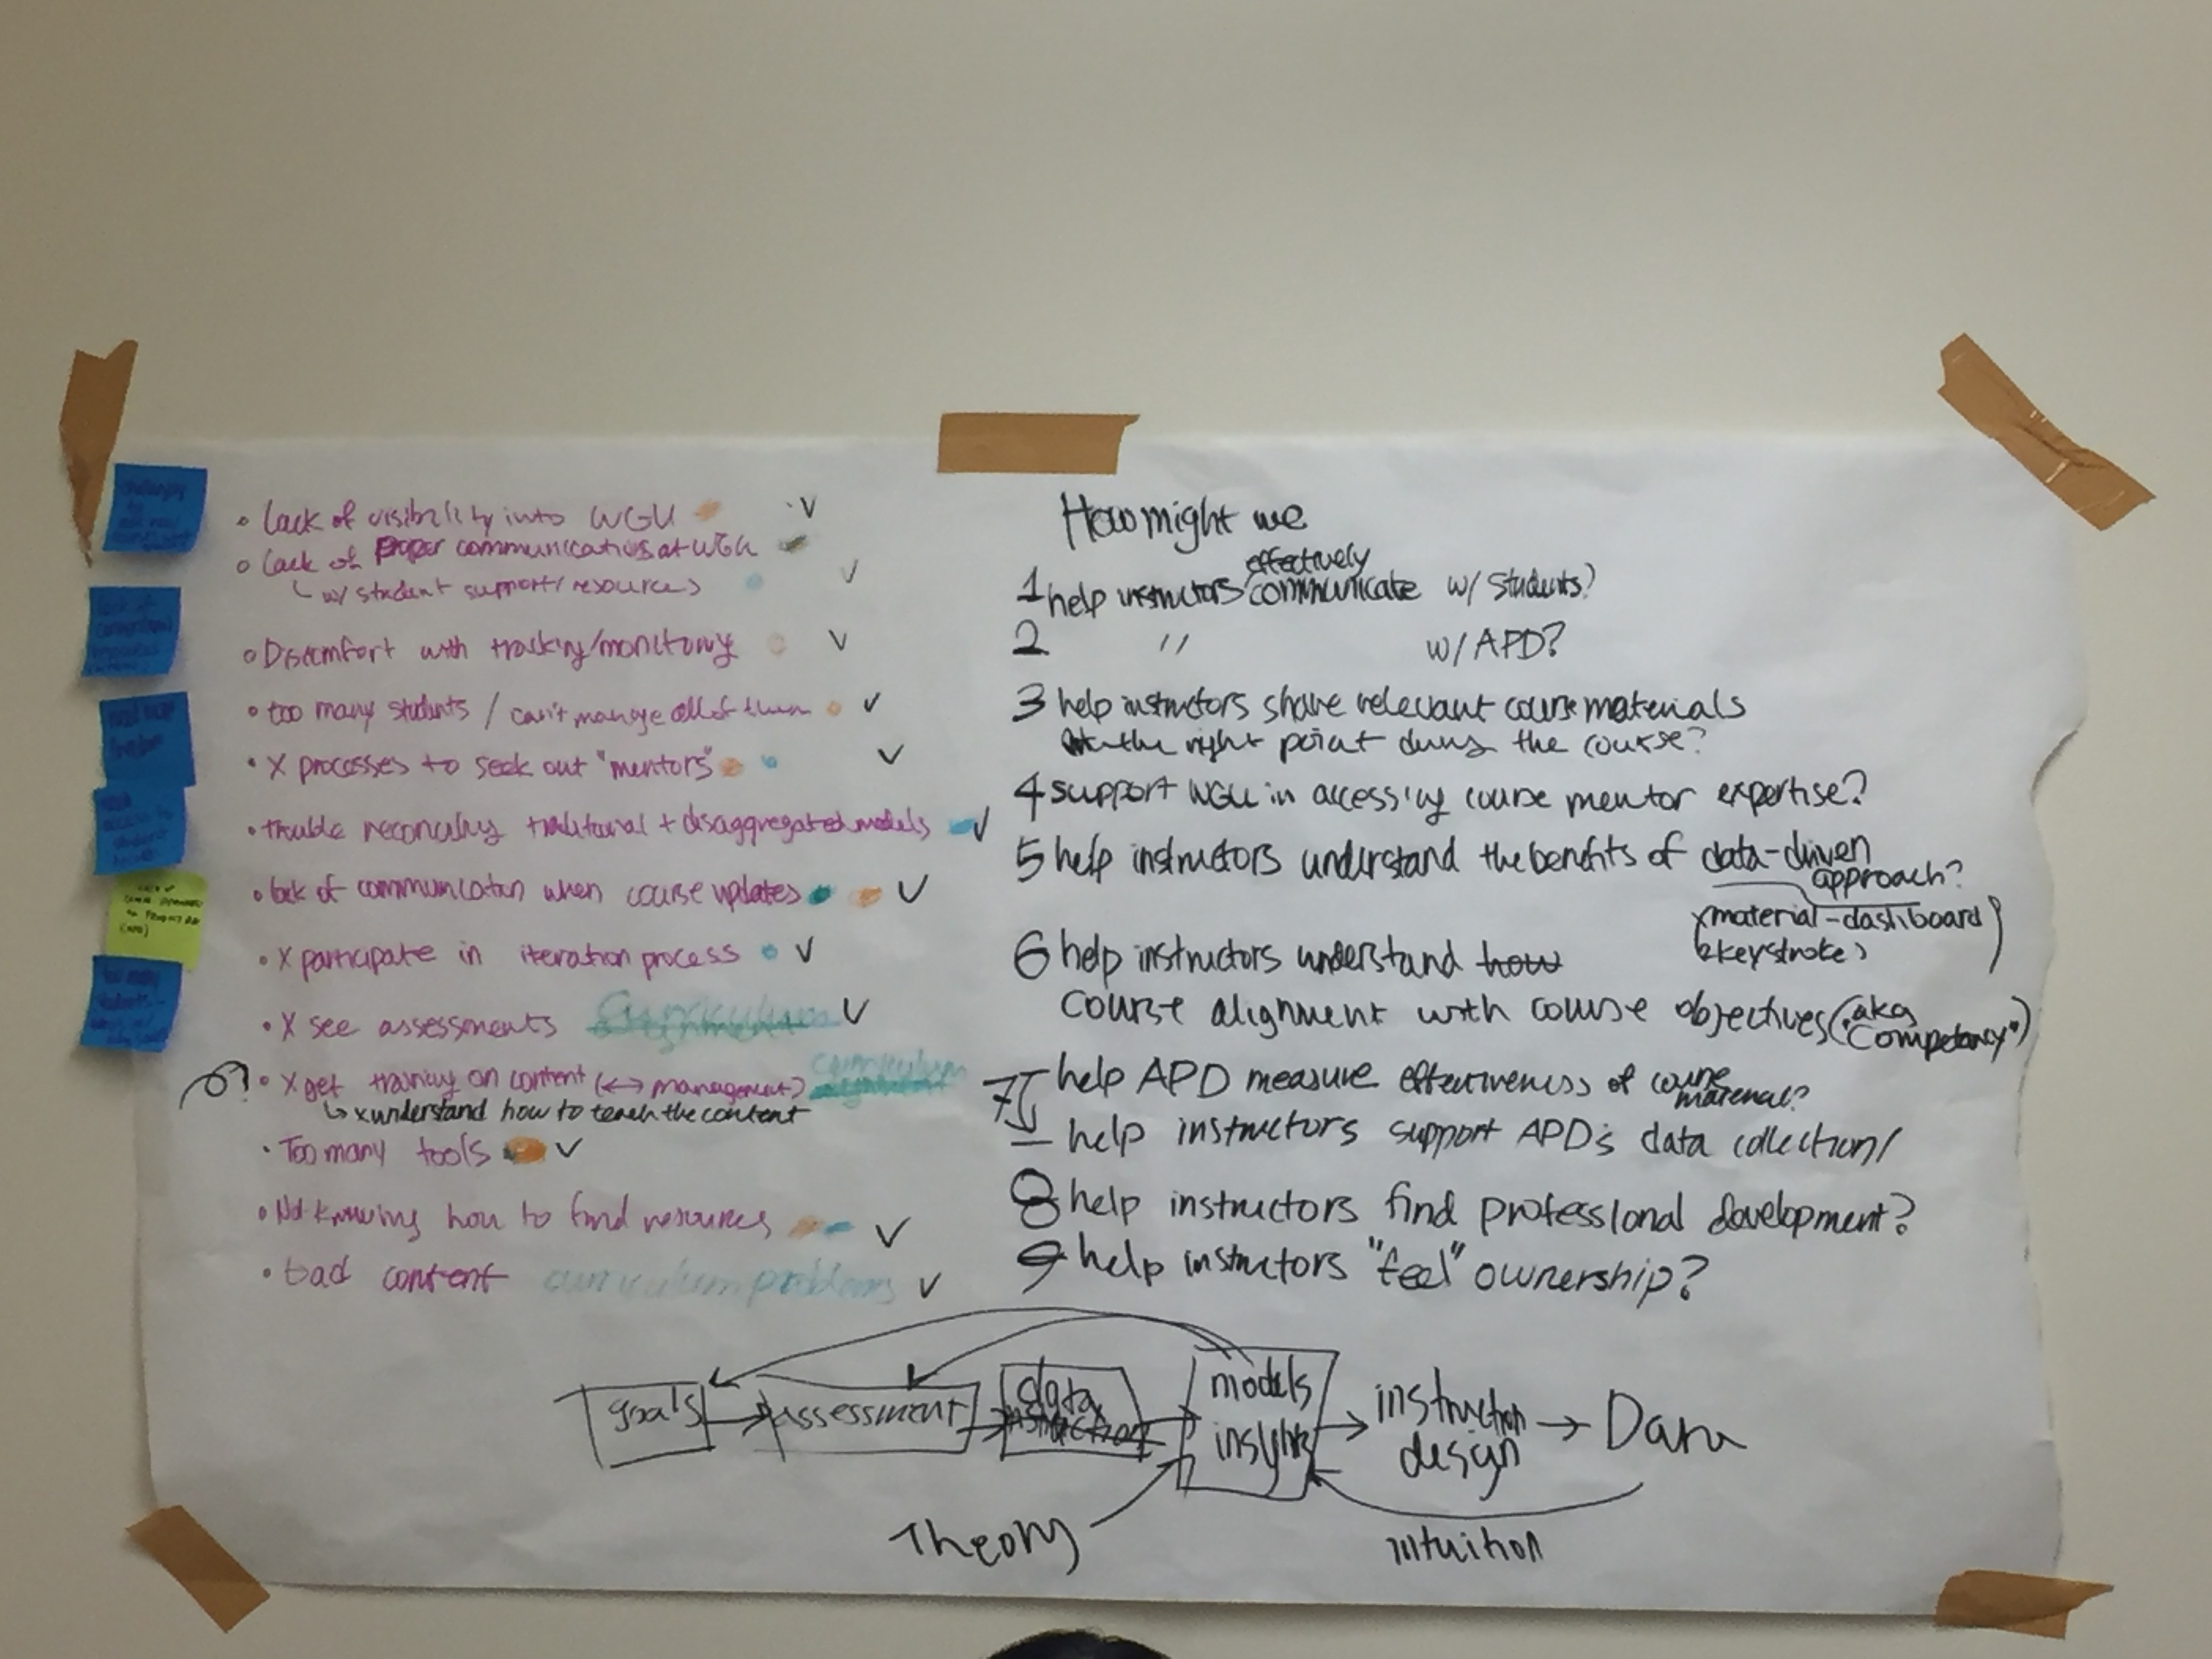 • Lack of visibility into WGU V
• Lack of proper communication at WGU
↳ w/ student support/resources V
• Discomfort with tracking/monitoring V
• too many students / can't manage all of them ✓
• X processes to seek out "mentors" ✓
• trouble reconciling traditional + disaggregated models ✓
• lack of communication when course updates ✓
• X participate in iteration process ✓
• X see assessments Curriculum ✓
• X get training on content (↔ management) curriculum
↳ x understand how to teach the content
• Too many tools ✓
• Not knowing how to find resources ✓
• bad content curriculum problems ✓
How might we
effectively
1 help instructors communicate w/ students?
2 " w/ APD?
3 help instructors share relevant course materials
the right point during the course?
4 support WGU in accessing course mentor expertise?
5 help instructors understand the benefits of data-driven
approach?
material-dashboard
keystrokes
6 help instructors understand how
course alignment with course objectives (aka
"Competency")
7 help APD measure effectiveness of course
material?
— help instructors support APD's data collection/
8 help instructors find professional development?
9 help instructors "feel" ownership?
goals → assessment → data → models
instruction insights → instruction
design →
Theory
intuition